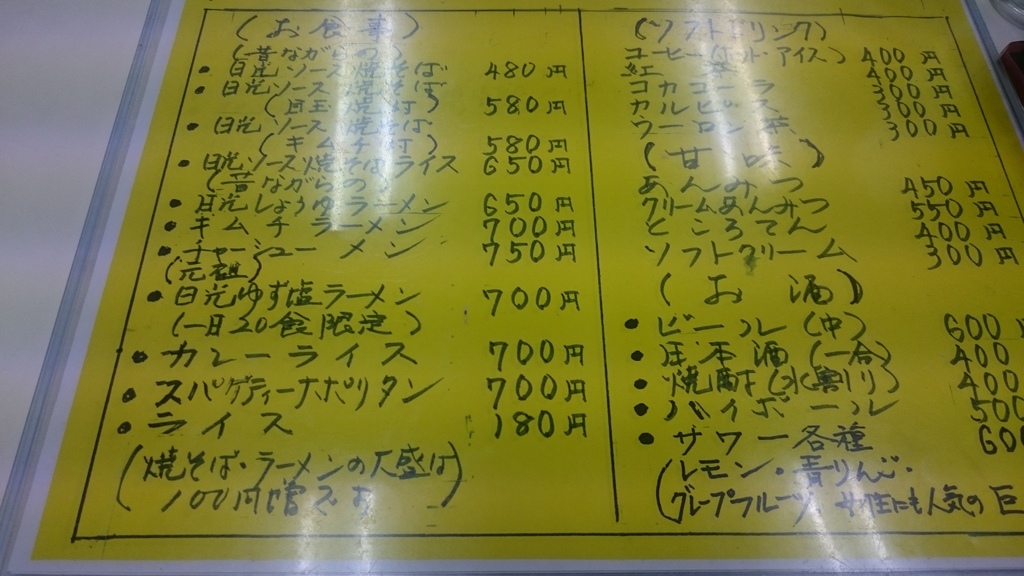 (お食事)
(昔ながらの)
・日光ソース焼そば 480円
・日光ソース焼そば
(目玉焼付) 580円
・日光ソース焼そば
(キムチ付) 580円
・日光ソース焼そばライス 650円
(昔ながらの)
・日光しょうゆラーメン 650円
・キムチラーメン 700円
・チャーシューメン 750円
(元祖)
・日光ゆず塩ラーメン 700円
(一日20食限定)
・カレーライス 700円
・スパゲティーナポリタン 700円
・ライス 180円
(焼そば・ラーメンの大盛は
100円増です)
(ソフトドリンク)
コーヒー(ホット アイス) 400円
紅茶 400円
コカコーラ 300円
カルピス 300円
ウーロン茶 300円
(甘味)
あんみつ 450円
クリームあんみつ 550円
ところてん 400円
ソフトクリーム 300円
(お酒)
・ビール(中) 600円
・日本酒(一合) 400
・焼酎(水割り) 400
・ハイボール 500
・サワー各種 600
(レモン・青りんご・
グレープフルーツ 女性にも人気の巨